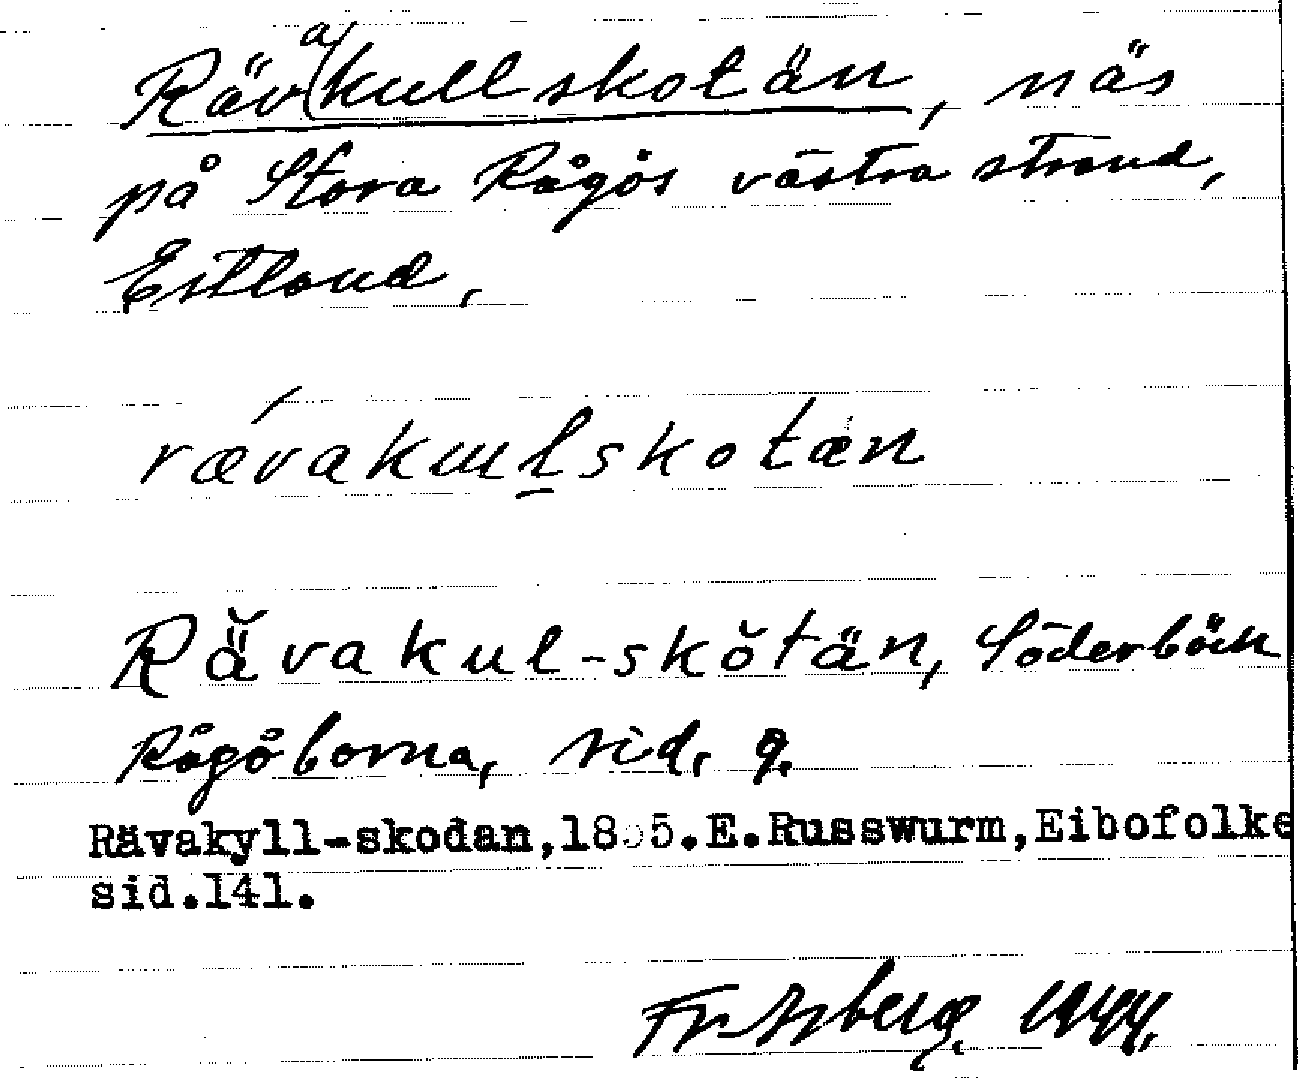 Räv(a)kullskotän, näs
på Stora Rågös västra strand,
Estland.
rævakɯu̱lskotæn
Rä̆vakul-skŏtän, Söderbäck
Rågöborna, sid. 9.
Rävakyll-skodan,1855.E.Russwurm,Eibofolke
sid.141.
1944.